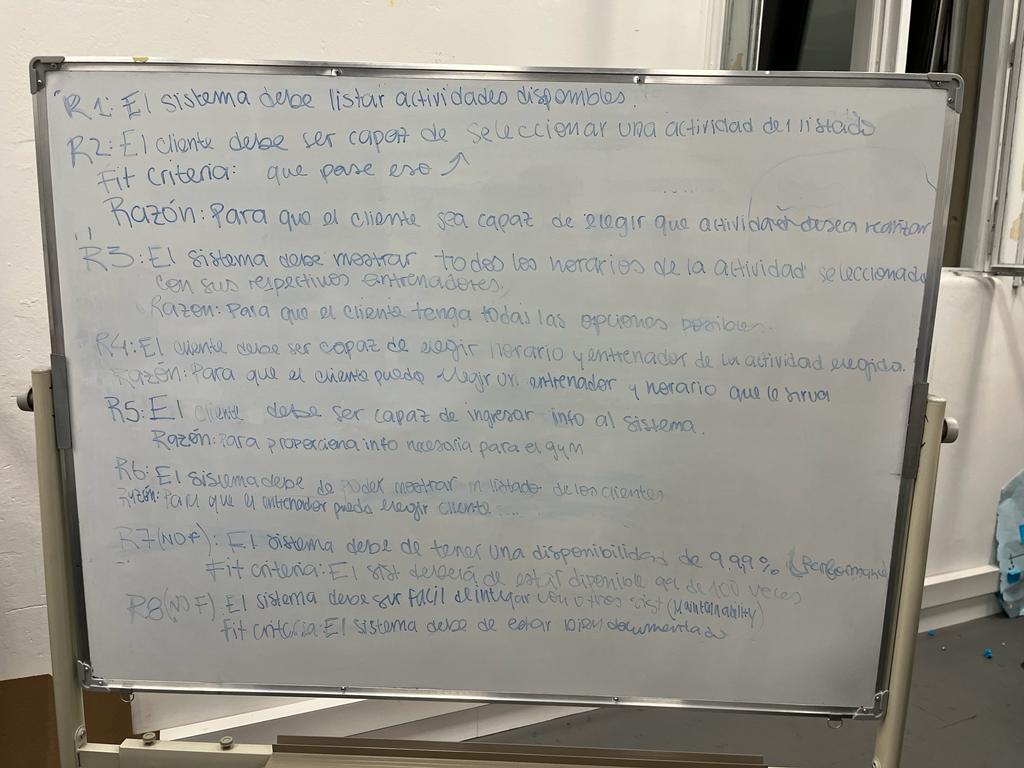 R1: El sistema debe listar actividades disponibles.
R2: El cliente debe ser capaz de seleccionar una actividad del listado
Fit criteria: que pase eso
Razón: Para que el cliente sea capaz de elegir que actividad desea realizar
R3: El sistema debe mostrar todos los horarios de la actividad seleccionada
con sus respectivos entrenadores.
Razon: Para que el cliente tenga todas las opciones posibles.
R4: El cliente debe ser capaz de elegir horario y entrenador de la actividad elegida.
Razón: Para que el cliente pueda elegir un entrenador y horario que le sirva
R5: El cliente debe ser capaz de ingresar info al sistema.
Razón: Para proporciona info necesaria para el gym
R6: El sistema debe de poder mostrar un listado de los clientes
Razón: Para que el entrenador pueda elegir cliente
R7 (NO F): El sistema debe de tener una disponibilidad de 99%
Fit criteria: El sist deberá de estar disponible 99 de 100 veces
R8 (NO F): El sistema debe ser facil de integar con otros sist (Maintainability)
Fit criteria: El sistema debe de estar bien documentado